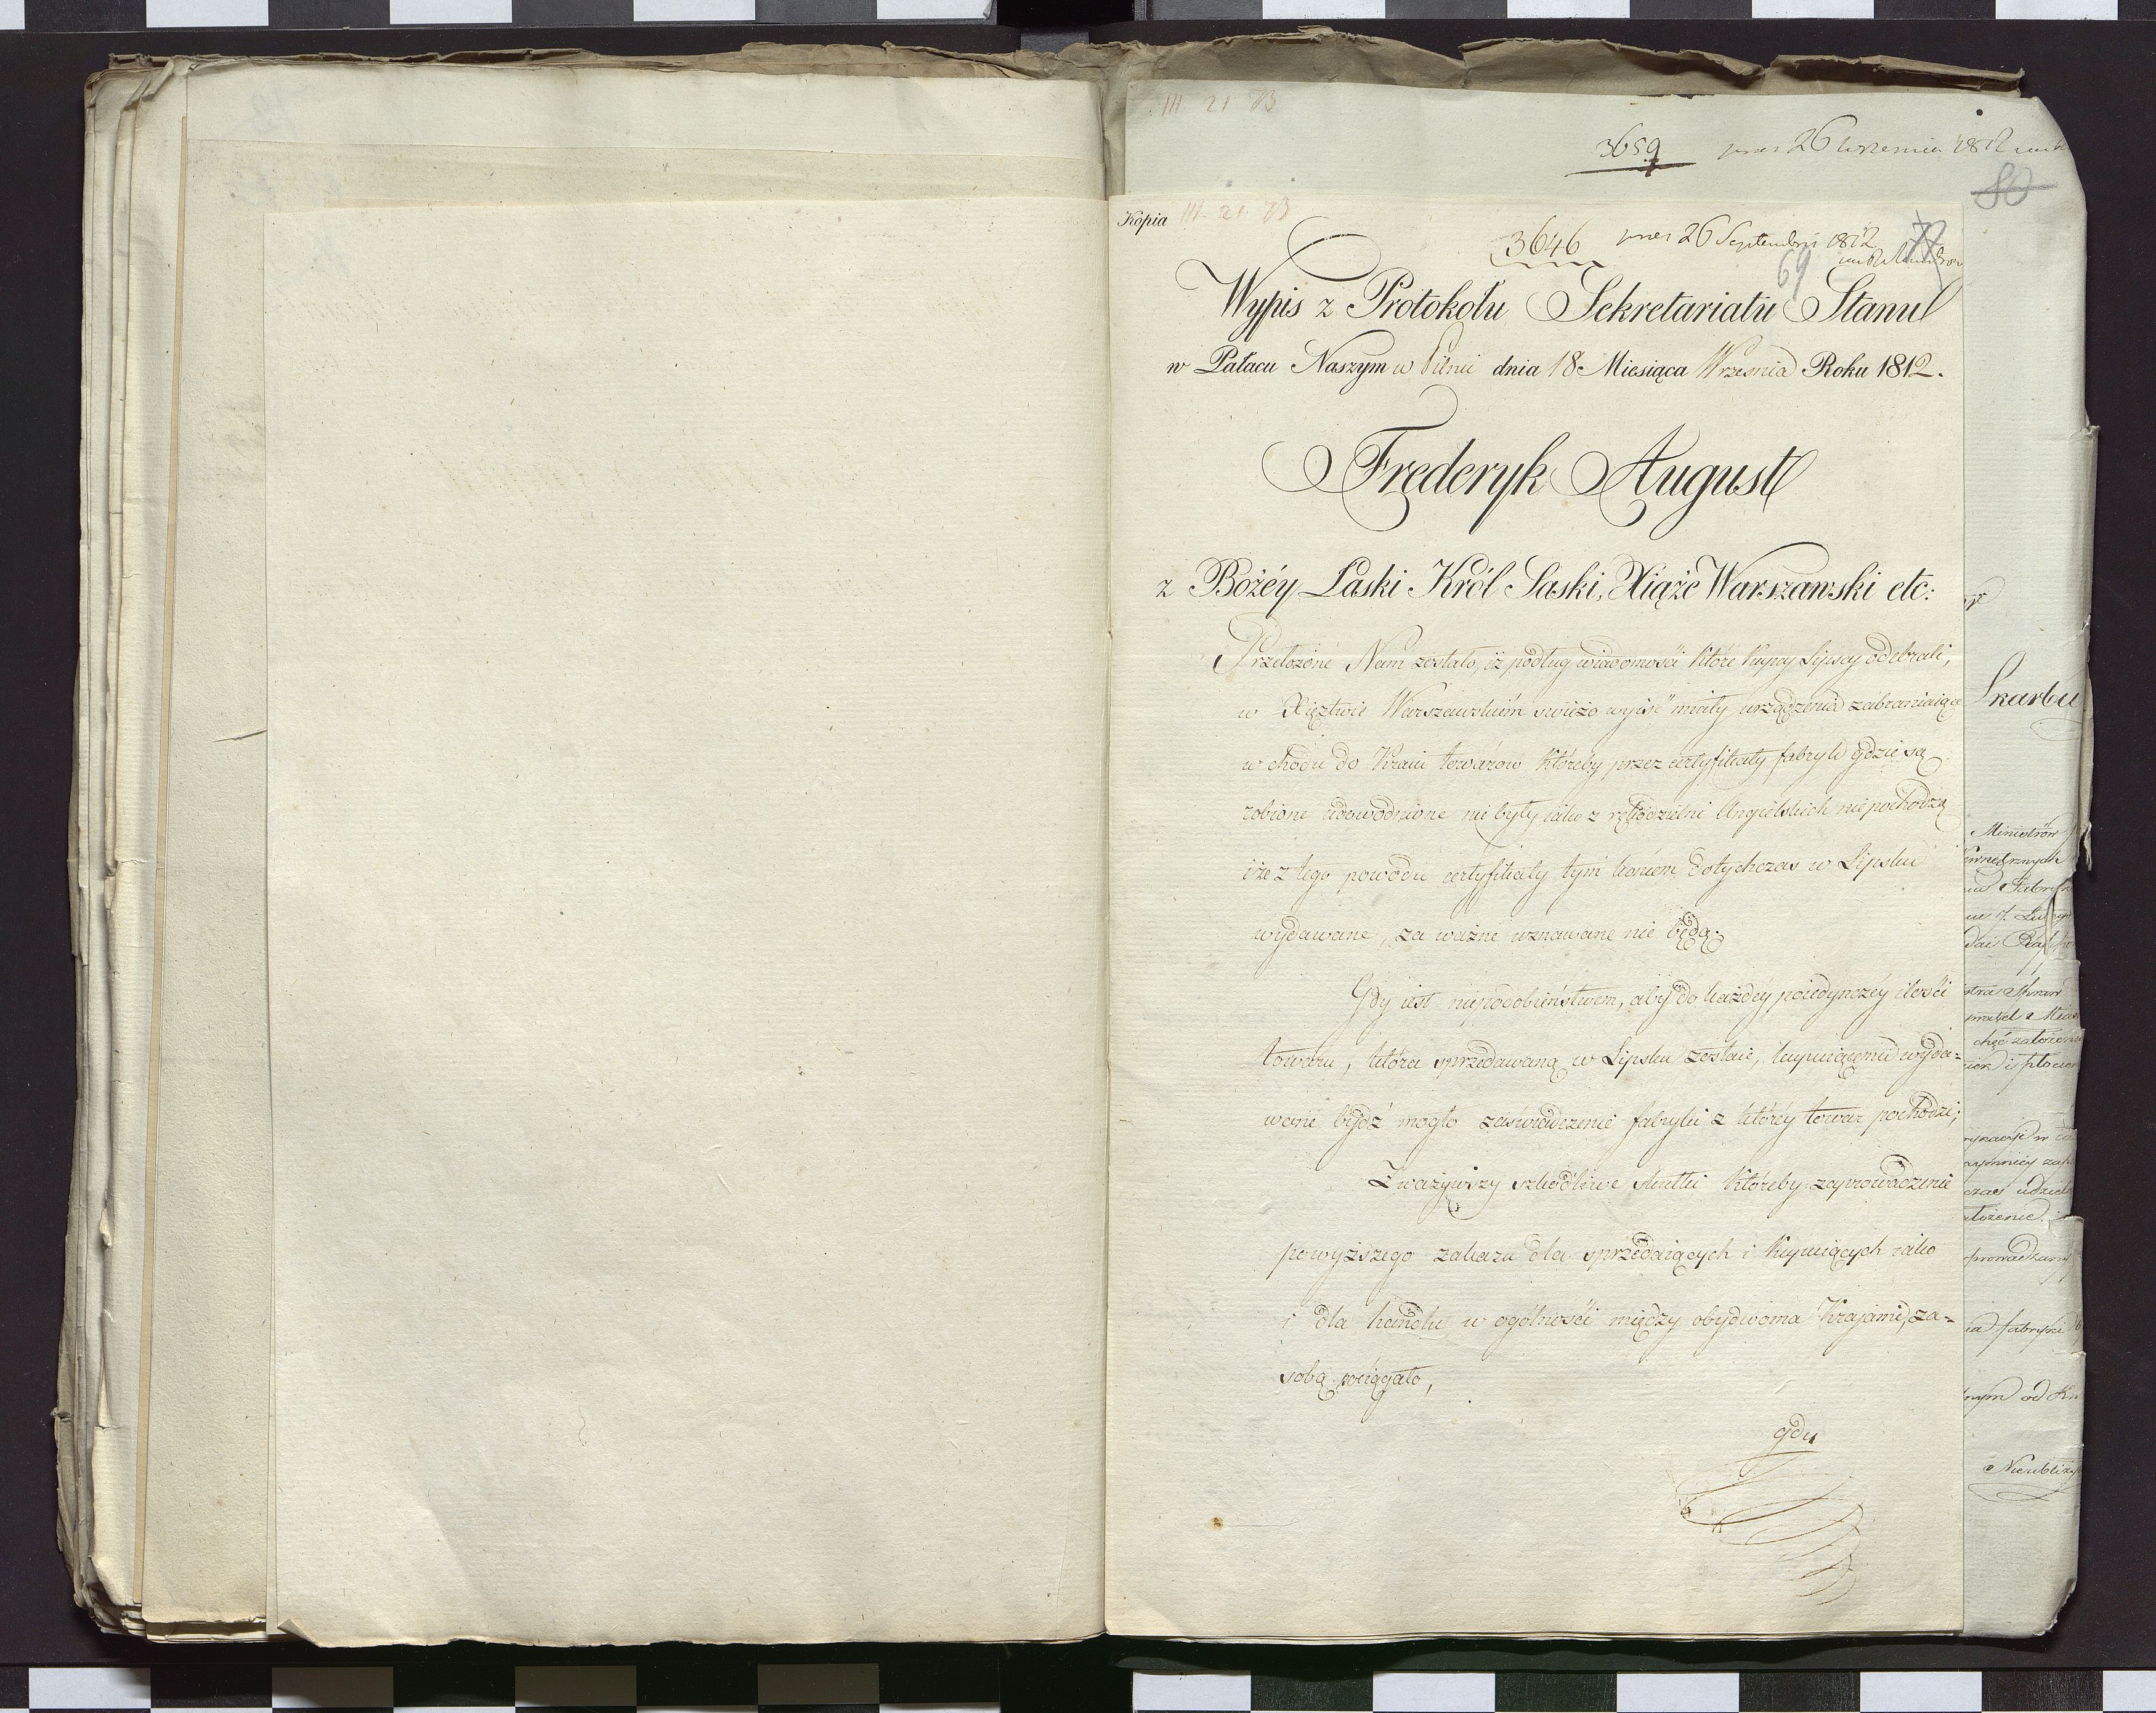 III 21 B
3659 26 Wrzesnia 1812
80
Kopia III. 21. B
3646 26 Septembris 1812 77
69
Wypis z Protokołu Sekretariatu Stanu
w Pałacu Naszym w Pilnic dnia 18 Miesiąca Wrzesnia Roku 1812.
Frederyk August
z Bożéy Łaski Król Saski, Xiąże Warszawski etc:
Przełożone Nam zostało, iż podług wiadomości które Kupcy Lipscy odebrali,
w Xięztwie Warszawskiém swieżo wyiść miały urządzenia zabraniaiące
wchodu do Kraiu towarów któreby przez certyfikaty fabryk gdzie są
robione udowodnione nie były iako z rękodzielni Angielskich nie pochodzą
i że z tego powodu certyfikaty tym końcem dotychczas w Lipsku
wydawane, za ważne uznawane nie będą.
Gdy iest niepodobieństwem, aby do każdey poiedynczéy ilości
towaru, która sprzedawaną w Lipsku zostaie, kupuiącemu wyda=
wane bydź mogło zaswiadczenie fabryki z któréy towar pochodzi;
Zważywszy szkodliwe skutki któreby zaprowadzenie
powyższego zakazu dla sprzedaiących i kupuiących iako
i dla handlu w ogólności między obydwoma Krajami, za=
sobą pociągało,
gdy
Skarbu
Ministrów